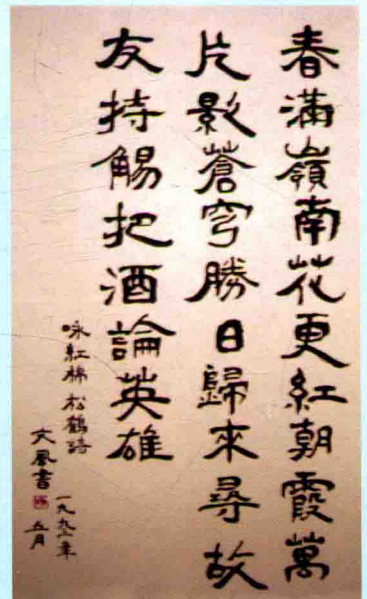 春滿嶺南花更紅朝霞萬
片影蒼穹勝日歸來尋故
友持觴把酒論英雄
咏紅棉松鶴詩
一九九二年五月
文風書